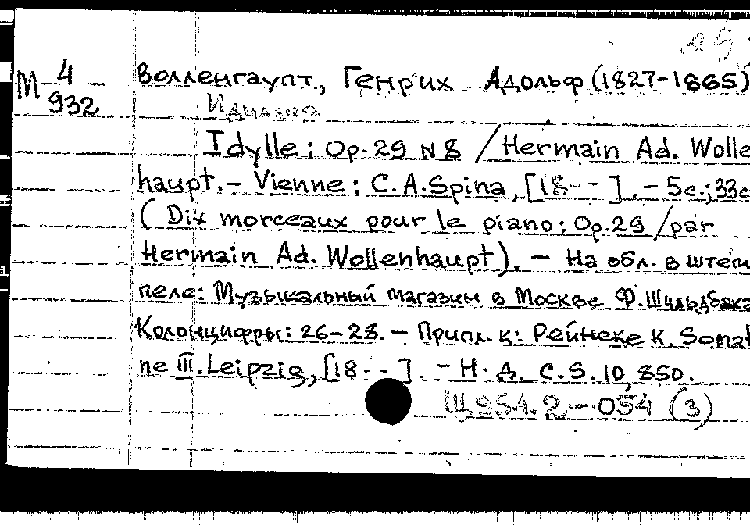 М 4
932
Волленгаупт, Генрих Адольф (1827-1865)
Идиллия
Idylle: Op. 29 N 8 / Hermain Ad. Wolle
haupt. – Vienne: C.A.Spina, [18--]. – 5с.; 33с
( Dix morceaux pour le piano: Op.29 / par
Hermain Ad. Wollenhaupt). – На обл. в штем
пеле: Музыкальный магазин в Москве Ф. Шильдбаха
Колонцифры: 26-28. – Припл. к: Рейнеке К. Sonat
ne III. Leipzig, [18--]. – Н. Д. C.S.10,850.
Щ954.2-054 (3)